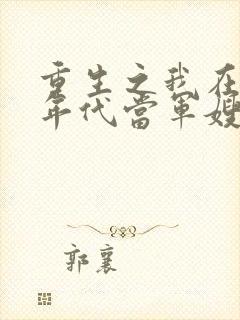 重生之我在
年代當軍嫂
郭襄